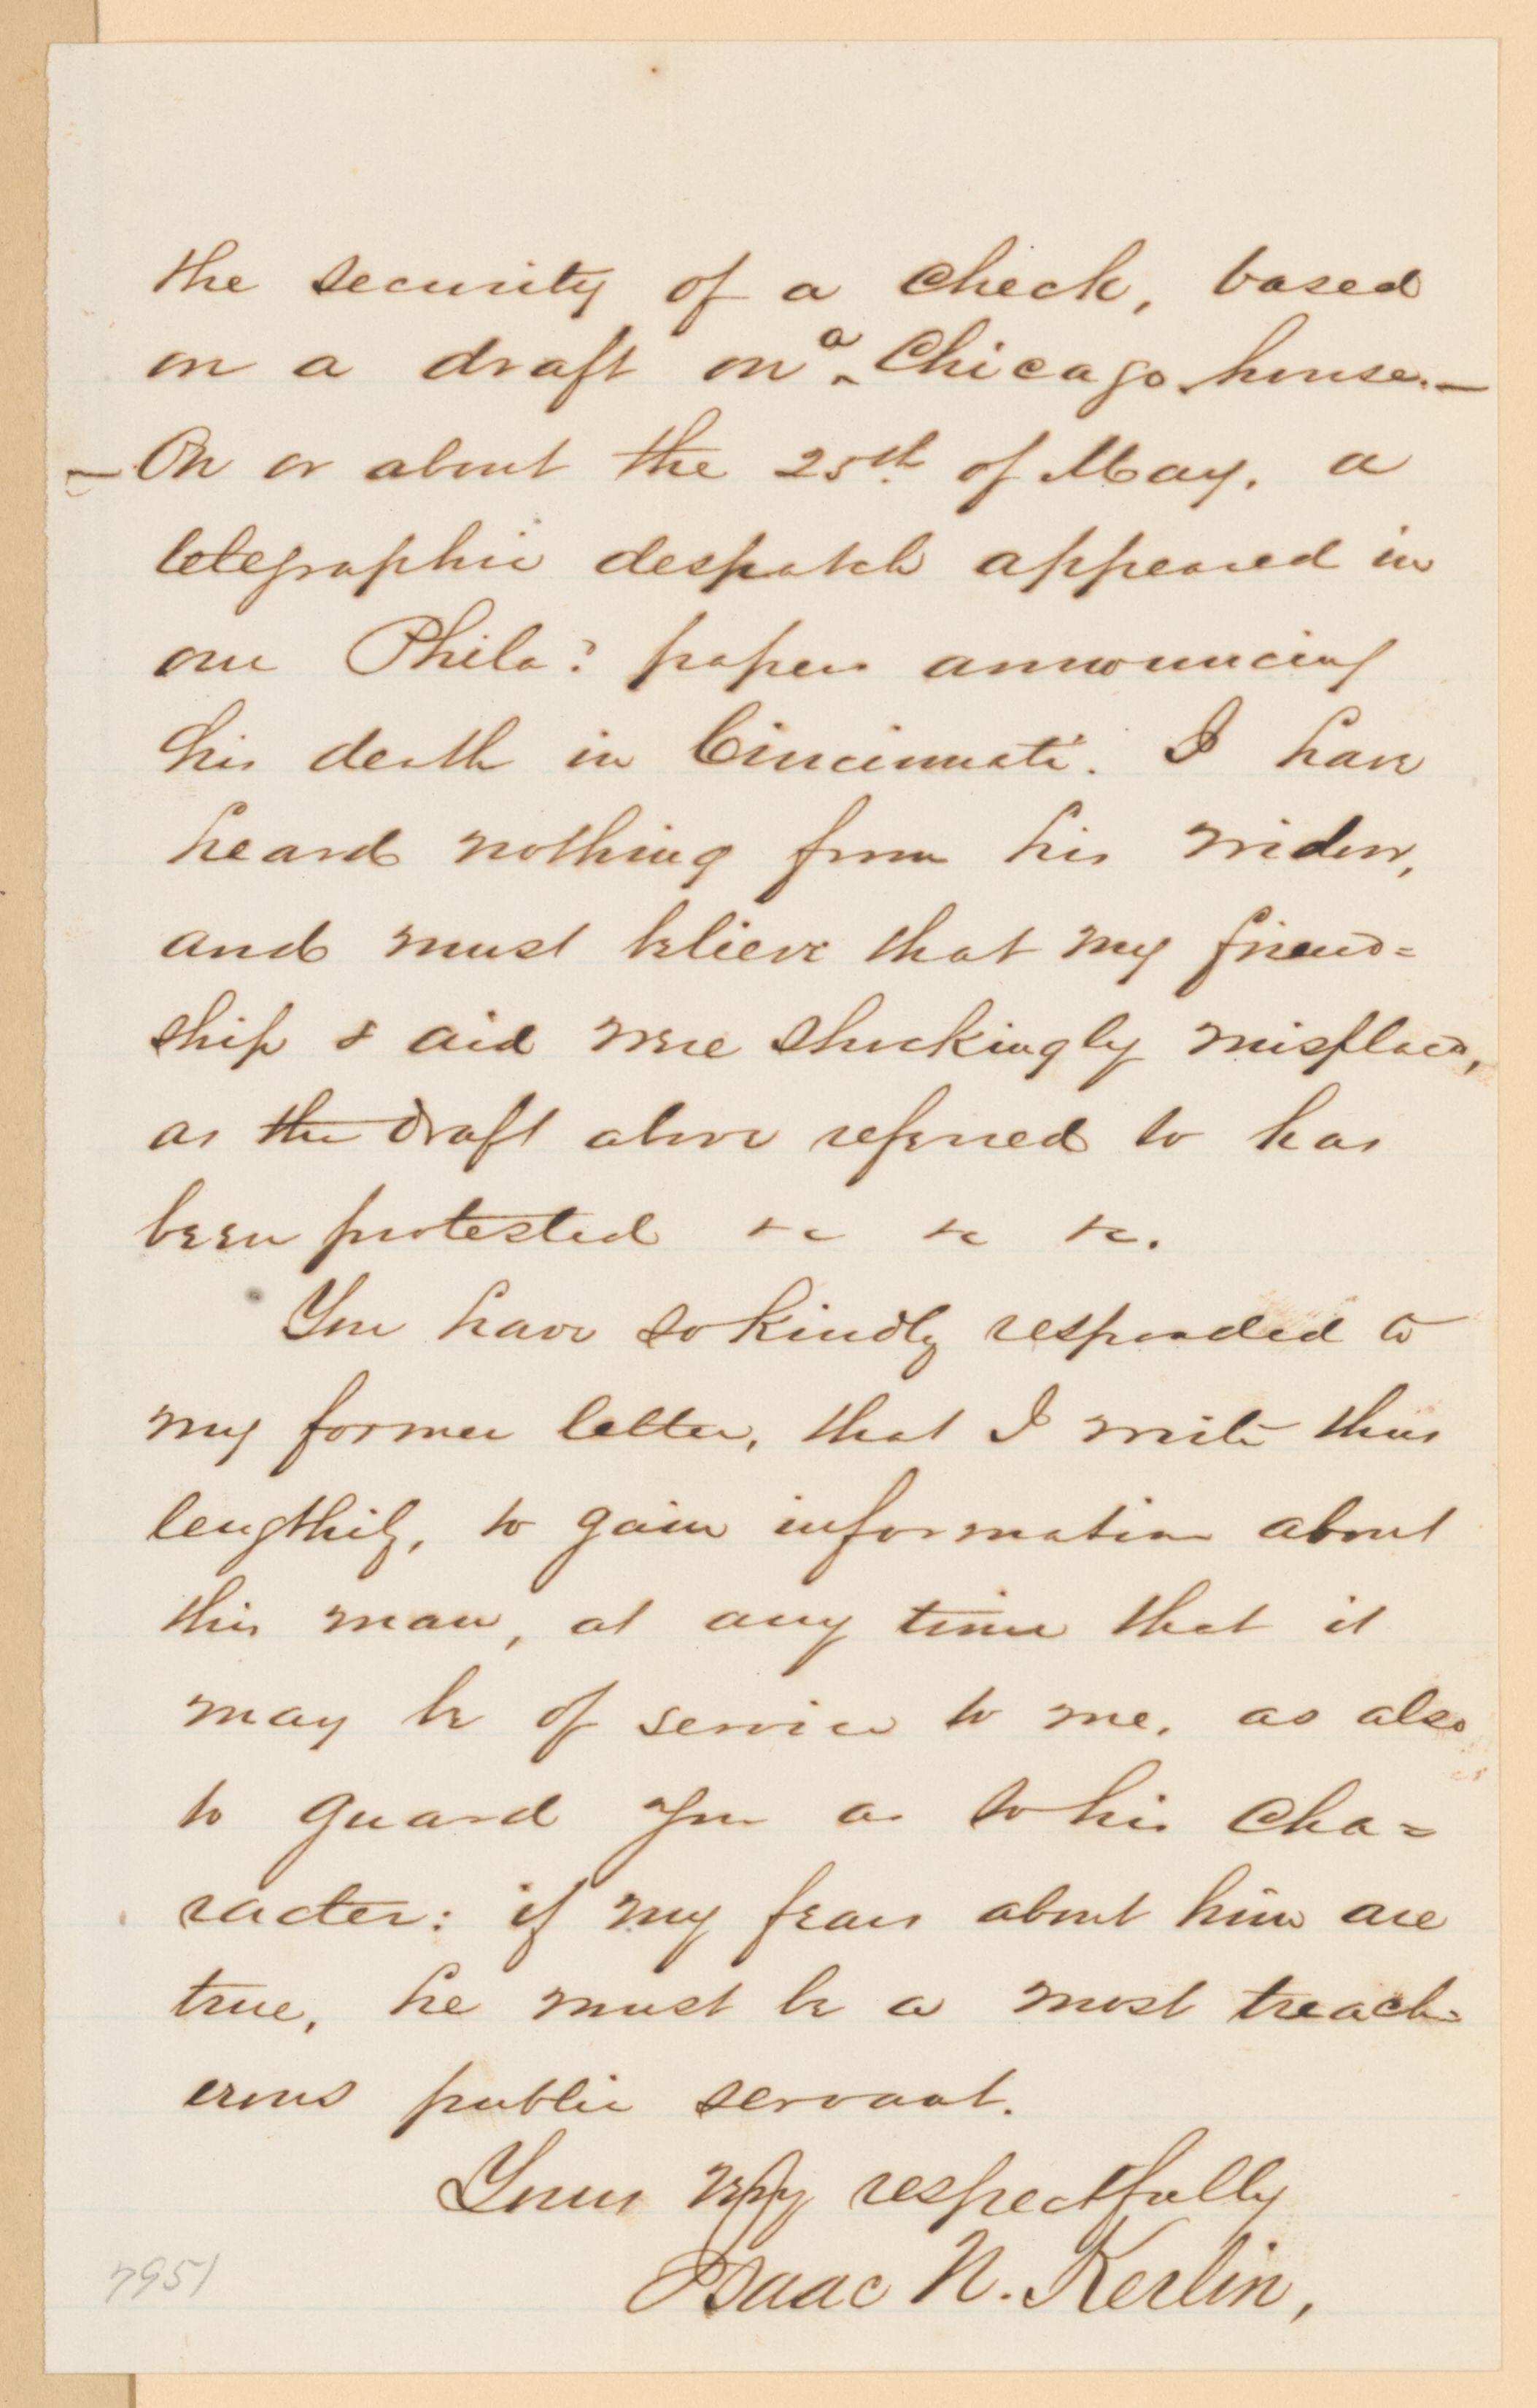 the security of a check, based
on a draft on a Chicago house.—
— On or about the 25th. of May, a
telegraphic despatch appeared in
our Phila: papers announcing
his death in Cincinnati. I have
heard nothing from his widow,
and must believe that my friend=
ship & aid were shockingly misplaced,
as the draft above referred to has
been protested &c &c &c.
You have so kindly responded to
my former letter, that I write thus
lengthily, to gain information about
this man, at any time that it
may be of service to me, as also
to guard you as to his cha=
racter: if my fears about him are
true, he must be a most treach=
erous public servant.
Yours very respectfully
Isaac N. Kerlin,
7951